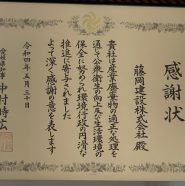 感謝状
藤岡建設株式会社 殿
貴社は産業廃棄物の適正処理を
通じ公衆衛生の向上及び生活環境の
保全に努められ環境行政の円滑な
推進に寄与されました
よって深く感謝の意を表します
令和四年五月三十日
愛媛県知事 中村時広